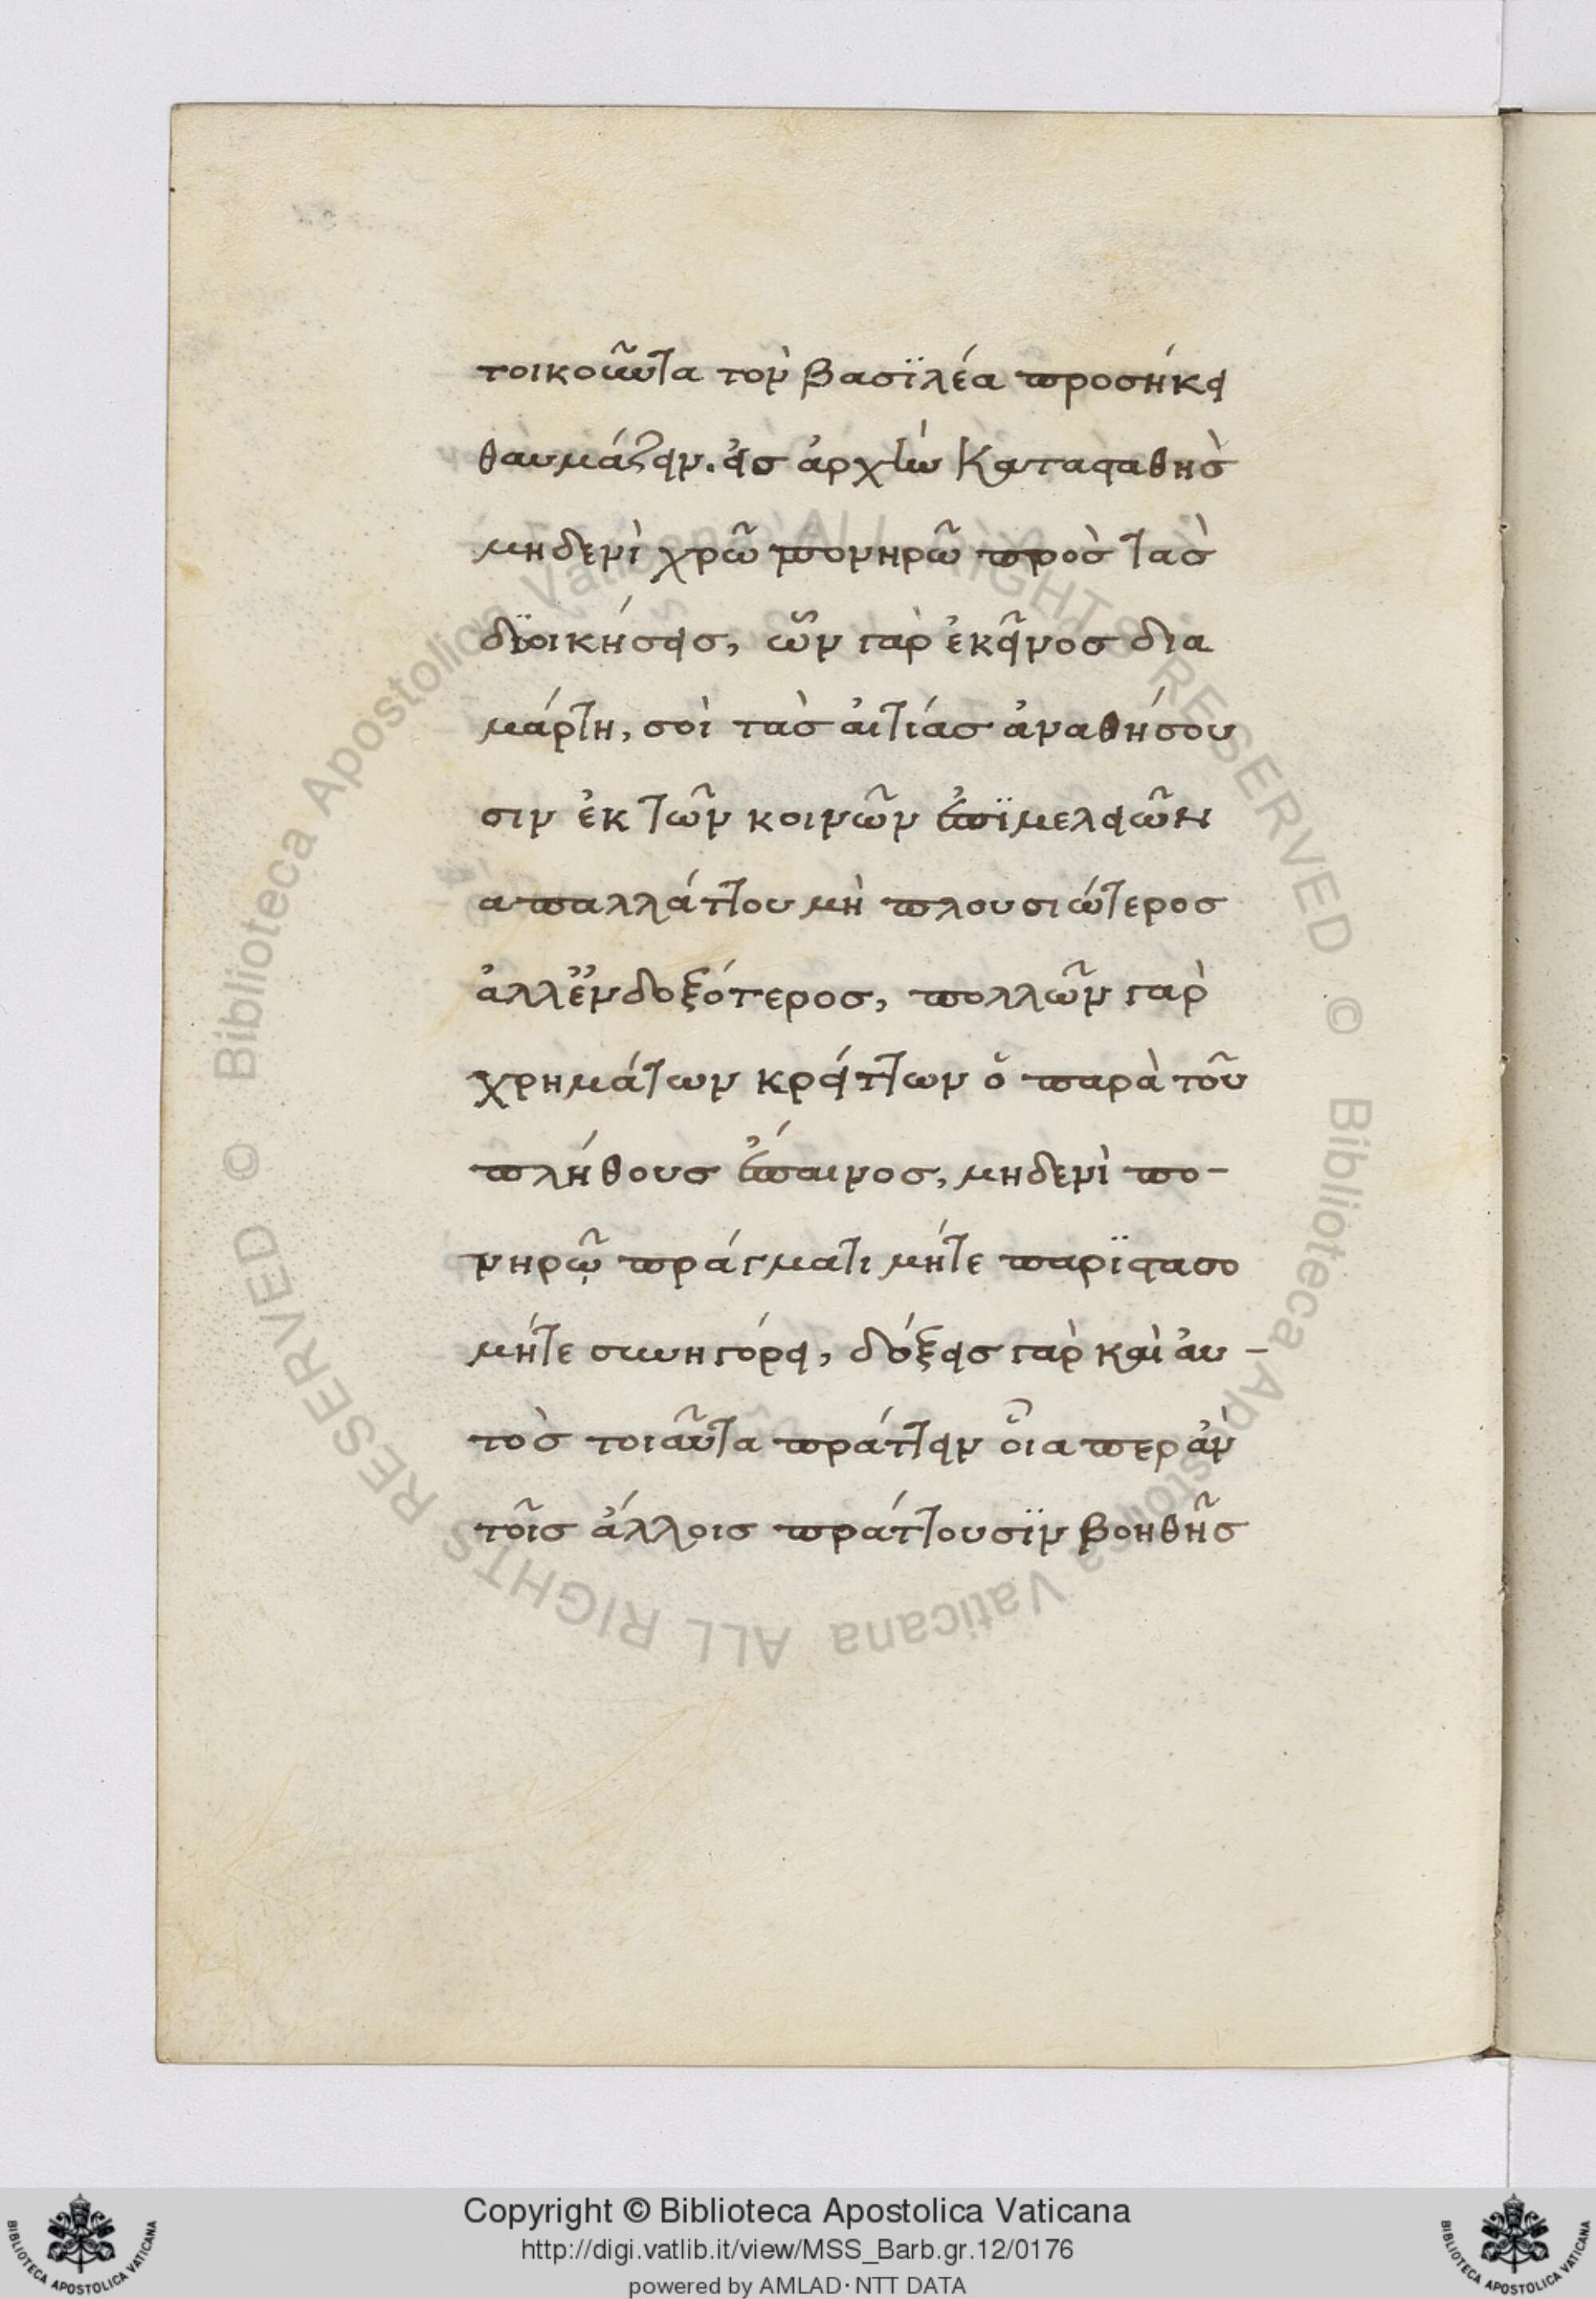 τοικοῦντα τὸν βασϊλέα προσήκει
θαυμάζειν. εἰσ ἀρχὴν κατασταθεὶσ
μηδενὶ χρῶ πονηρῶ πρὸσ τὰσ
δϊοικήσεισ, ὧν γὰρ ἐκεῖνοσ δια
μάρτη, σοὶ τὰσ ἀιτίασ ἀναθήσου
σιν ἐκ τῶν κοινῶν ἐπϊμελειῶν
απαλλάττου μὴ πλουσιώτεροσ
ἀλλ ἐνδοξότεροσ, πολλῶν γὰρ
χρημάτων κρείττων ὁ παρὰ τοῦ
πλήθουσ ἔπαινοσ, μηδενὶ πο-
νηρῷ πράγματι μήτε παρϊστασο
μήτε συνηγόρει, δόξεισ γὰρ καὶ ἀυ-
τὸσ τοιαῦτα πράττειν οἷα περ ἀν
τοῖσ ἄλλοισ πράττουσϊν βοηθῆσ
Copyright © Biblioteca Apostolica Vaticana
http://digi.vatlib.it/view/MSS_Barb.gr.12/0176
powered by AMLAD·NTT DATA
© Biblioteca Apostolica Vaticana ALL RIGHTS RESERVED © Biblioteca Apostolica Vaticana ALL RIGHTS RESERVED
BIBLIOTECA APOSTOLICA VATICANA
BIBLIOTECA APOSTOLICA VATICANA